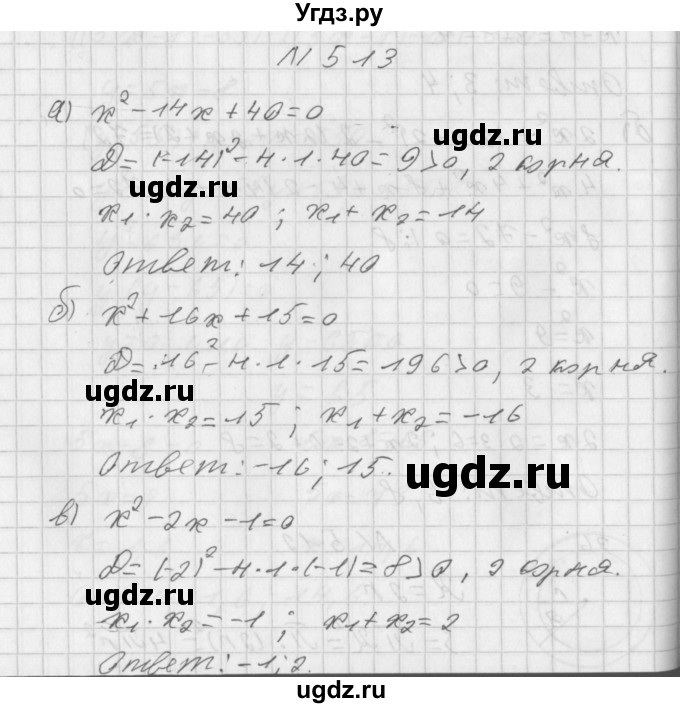 Угдз.ру
N 513
а) x² - 14x + 40 = 0
D = (-14)² - 4 · 1 · 40 = 9 > 0, 2 корня.
ugdz.ru
x₁ · x₂ = 40 ; x₁ + x₂ = 14
ugdz.ru
Ответ: 14 ; 40
б) x² + 16x + 15 = 0
D = 16² - 4 · 1 · 15 = 196 > 0, 2 корня.
ugdz.ru
x₁ · x₂ = 15 ; x₁ + x₂ = -16
Ответ: -16 ; 15.
ugdz.ru
в) x² - 2x - 1 = 0
D = (-2)² - 4 · 1 · (-1) = 8 > 0, 2 корня.
ugdz.ru
x₁ · x₂ = -1 ; x₁ + x₂ = 2
ugdz.ru
Ответ: -1 ; 2.
ugdz.ru